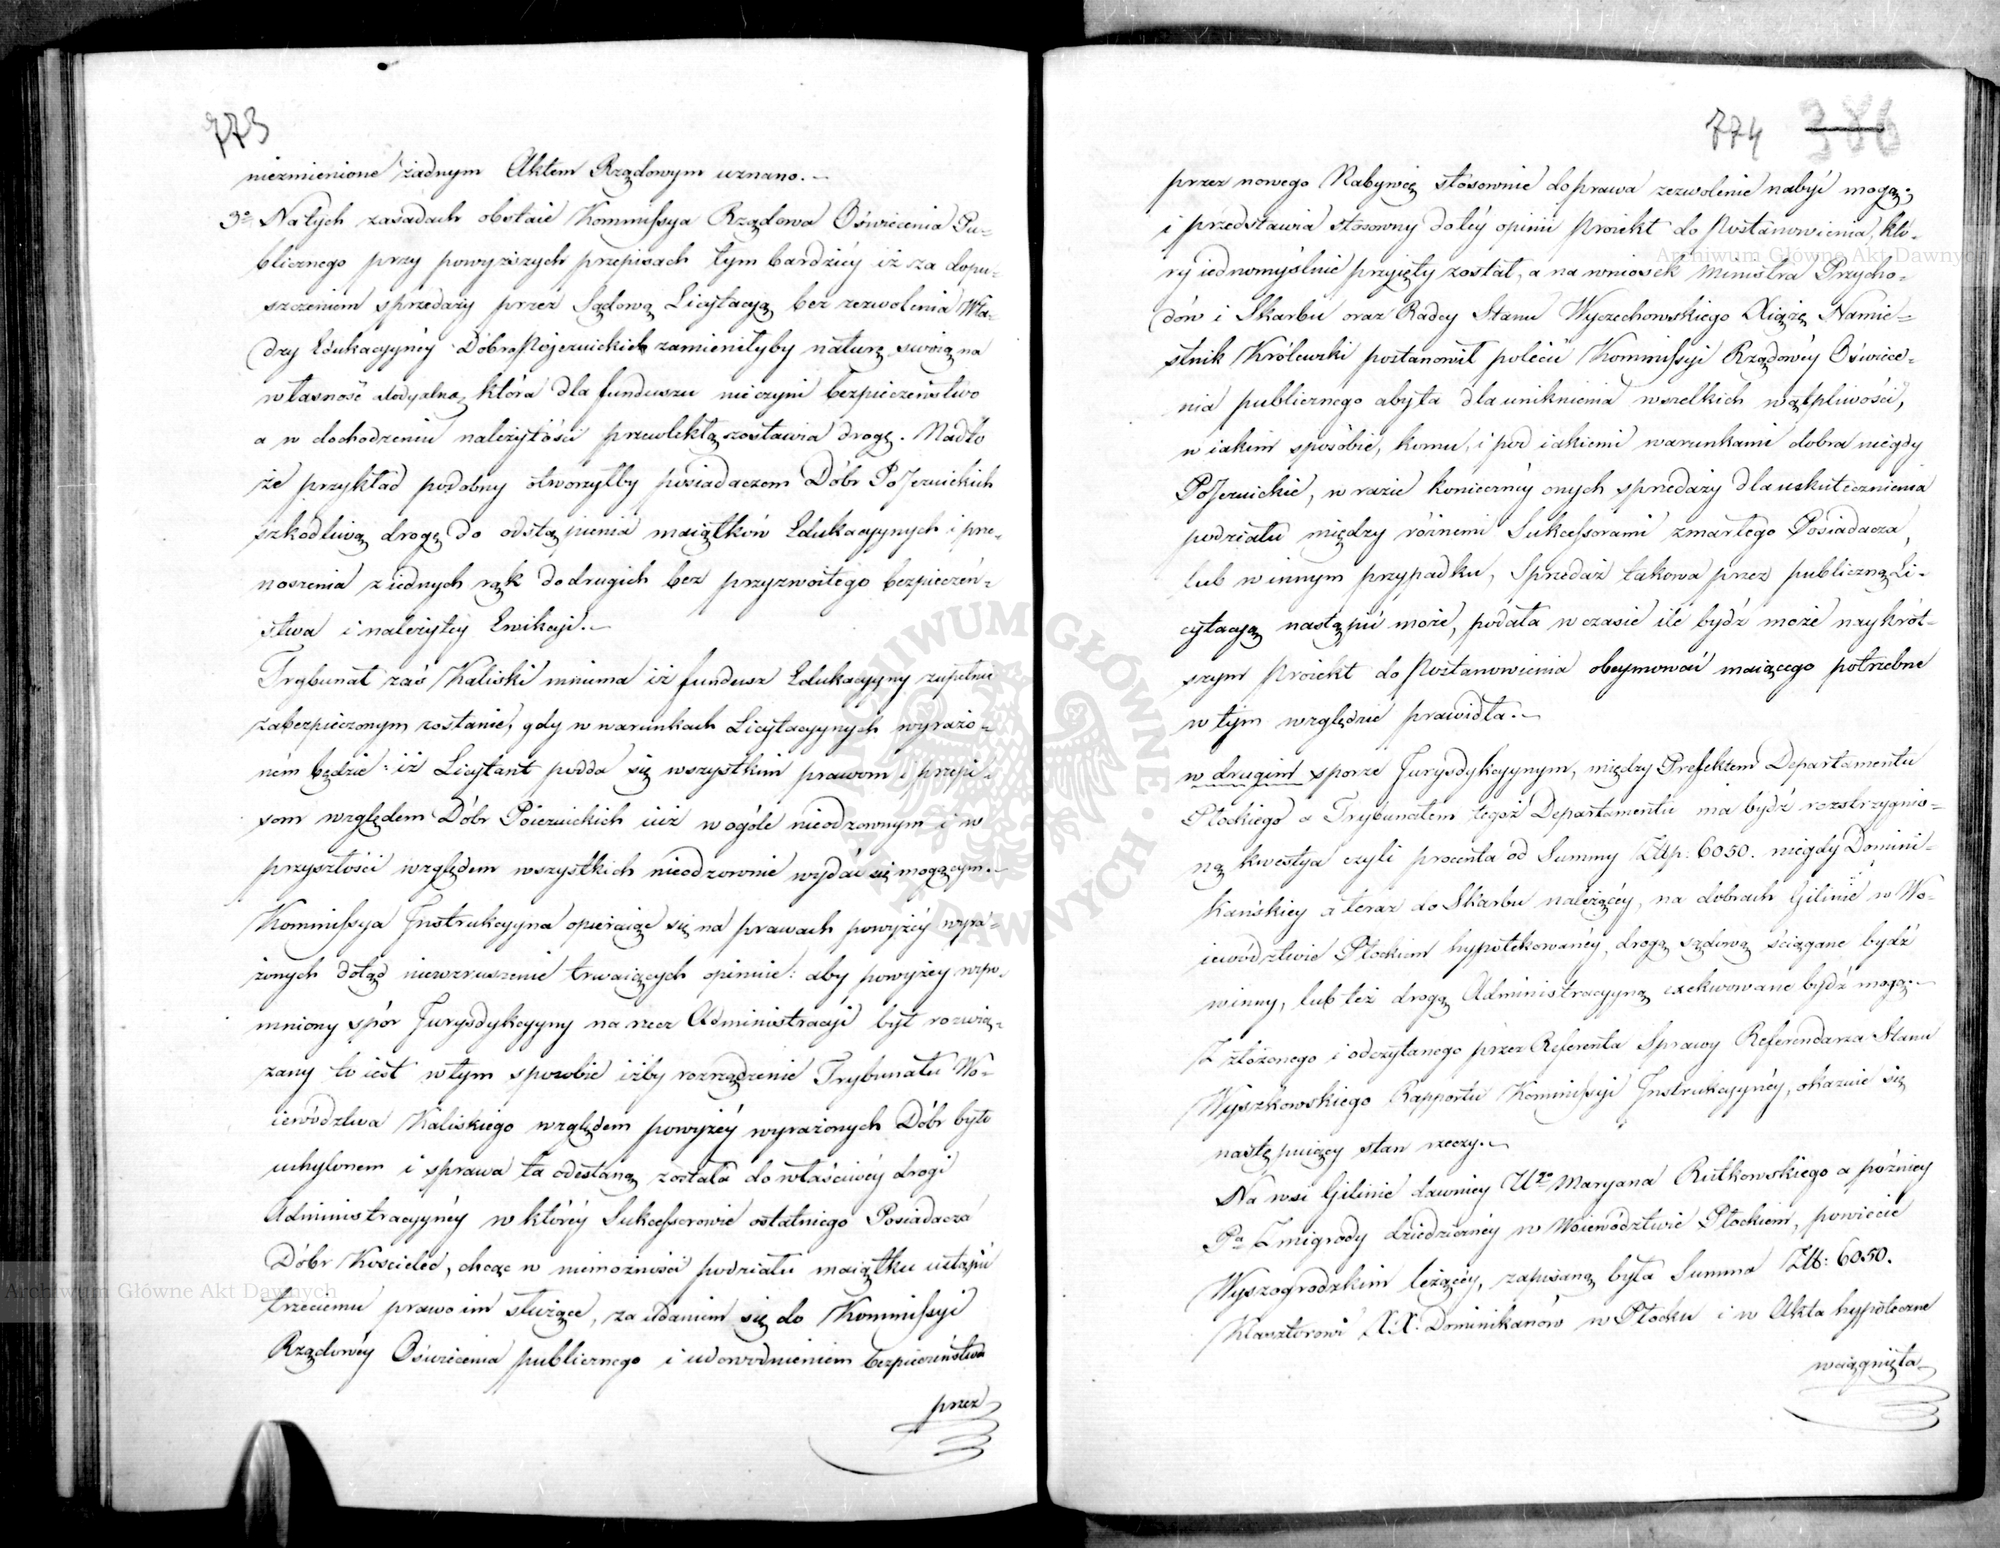 773
niezmienione żadnym Aktem Rządowym uznano.—
3º Na tych zasadach obstaie Kommissya Rządowa Oświecenia Pu-
blicznego przy powyższych przepisach tym bardziéy iż za dopu-
szczeniem sprzedaży przez Sądową Licytacyą bez zezwolenia Wła-
dzy Edukacyynéy Dobra Pojezuickie zamieniłyby naturę swoią na
własność allodyalną, która dla funduszu nie czyni bezpieczeństwo
a w dochodzeniu należytości przewlekłą zostawia drogę. Nadto
że przykład podobny otworzyłby posiadaczom Dóbr PoJezuickich
szkodliwą drogę do odstąpienia maiątków Edukacyynych i prze-
noszenia z iednych rąk do drugich bez przyzwoitego bezpieczeń-
stwa i należytey Ewikcyi.—
Trybunał zaś Kaliski mniema iż fundusz Edukacyyny zupełnie
zabezpieczonym zostanie, gdy w warunkach Licytacyynych wyrażo-
ném będzie: iż Licytant podda się wszystkim prawom i przepi-
som względem Dóbr Poiezuickich iuż w ogóle nieodzownym i w
przyszłości względem wszystkich nieodzownie wydać się mogącym.—
Kommissya Instrukcyyna opieraiąc się na prawach powyżéy wyra-
żonych dotąd niewzruszenie trwaiących opiniuie: aby powyżey wspo-
mniony spór Jurysdykcyyny na rzecz Administracyi był rozwią-
zany to iest w tym sposobie iżby rozrządzenie Trybunału Wo-
iewództwa Kaliskiego względem powyżéy wyrażonych Dóbr było
uchylonem i sprawa ta odesłaną została do właściwéy drogi
Administracyynéy w któréy Sukcessorowie ostatniego Posiadacza
Dóbr Kościelec, chcąc w niemożności podziału maiątku ustąpić
trzeciemu prawo im służące, za udaniem się do Kommissyi
Rządowéy Oświecenia publicznego i udowodnieniem bezpieczeństwa
przez
774 386
przez nowego Nabywcę stosownie do prawa zezwolenie nabyć mogą;
i przedstawia stosowny do téy opinii Proiekt do Postanowienia, któ-
ry iednomyślnie przyięty został, a na wniosek Ministra Przycho-
dów i Skarbu oraz Radcy Stanu Wyczechowskiego Xiążę Namie-
stnik Królewski postanowił polécić Kommissyi Rządowéy Oświece-
nia publicznego aby ta dla uniknienia wszelkich wątpliwości,
w iakim sposobie, komu, i pod iakiemi warunkami dobra niegdy
PoJezuickie, w razie koniecznéy onych sprzedaży dla uskutecznienia
podziału między różnemi Sukcessorami zmarłego Posiadacza,
lub w innym przypadku, sprzedaż takowa przez publiczną Li-
cytacyą nastąpić może, podała w czasie ile bydź może naykrót-
szym Proiekt do Postanowienia obeymować maiącego potrzebne
w tym względzie prawidła.—
w drugim sporze Jurysdykcyynym, między Prefektem Departamentu
Płockiego a Trybunałem tegoż Departamentu ma bydź rozstrzygnio-
ną kwestya czyli procenta od Summy Złtp: 6050. niegdy Domini-
kańskiey a teraz do Skarbu należącéy, na dobrach Gilinie w Wo-
iewództwie Płockim hypotekowanéy, drogą sądową ściągane bydź
winny, lub też drogą Administracyyną exekwowane bydź mogą.—
Z złożonego i odczytanego przez Referenta Sprawy Referendarza Stanu
Wyszkowskiego Rapportu Kommissyi Instrukcyynéy, okazuie się
następuiący stan rzeczy.—
Na wsi Gilinie dawniey Urº Maryana Rutkowskiego a późniey
Pa Zmigrody dziedziczney w Woiewództwie Płockiem, powiecie
Wyszogrodzkim leżącéy, zapisaną była Summa Złt: 6050.
Klasztorowi X.X. Dominikanów w Płocku i w Akta hypoteczne
wciągnięta
ARCHIWUM GŁÓWNE AKT DAWNYCH
Archiwum Główne Akt Dawnych
Archiwum Główne Akt Dawnych